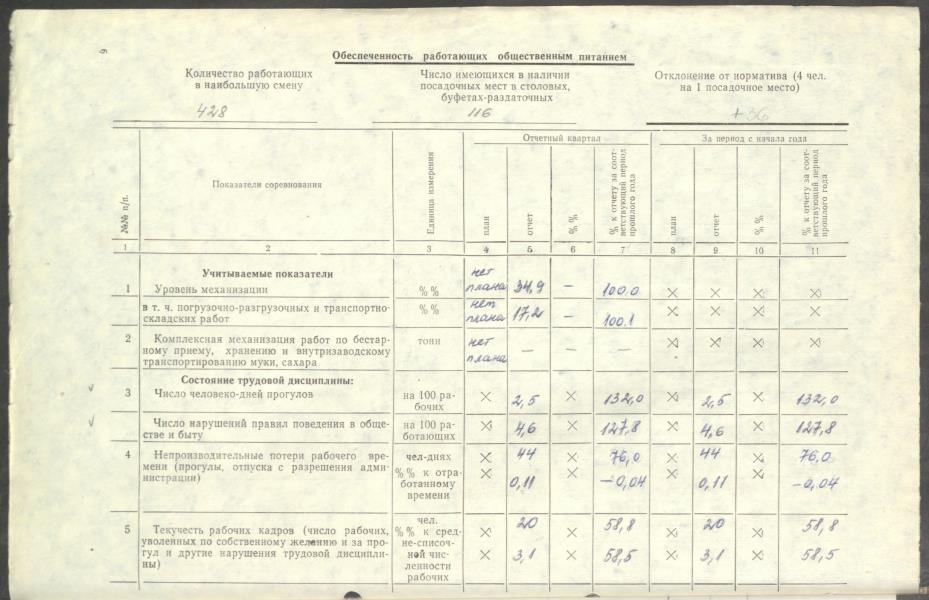 9
Обеспеченность работающих общественным питанием
Количество работающих
в наибольшую смену
428
Число имеющихся в наличии
посадочных мест в столовых,
буфетах-раздаточных
116
Отклонение от норматива (4 чел.
на 1 посадочное место)
+36
№№ п/п.
Показатели соревнования
Единица измерения
Отчетный квартал
За период с начала года
план
отчет
% %
% к отчету за соот-
ветствующий период
прошлого года
план
отчет
% %
% к отчету за соот-
ветствующий период
прошлого года
1 2 3 4 5 6 7 8 9 10 11
Учитываемые показатели
1 Уровень механизации % % нет плана 34,9 — 100.0 × × × ×
в т. ч. погрузочно-разгрузочных и транспортно-
складских работ % % нет плана 17,2 — 100.1 × × × ×
2 Комплексная механизация работ по бестар-
ному приему, хранению и внутризаводскому
транспортированию муки, сахара тонн нет плана — — — × × × ×
Состояние трудовой дисциплины:
3 Число человеко-дней прогулов на 100 ра-
бочих × 2,5 × 132,0 × 2,5 × 132,0
Число нарушений правил поведения в обще-
стве и быту на 100 ра-
ботающих × 4,6 × 127,8 × 4,6 × 127,8
4 Непроизводительные потери рабочего вре-
мени (прогулы, отпуска с разрешения адми-
нистрации) чел-днях × 44 × 76,0 × 44 × 76,0
% % к отра-
ботанному
времени × 0,11 × —0,04 × 0,11 × —0,04
5 Текучесть рабочих кадров (число рабочих,
уволенных по собственному желанию и за про-
гул и другие нарушения трудовой дисципли-
ны) чел. × 20 × 58,8 × 20 × 58,8
% % к сред-
не-списоч-
ной чис-
ленности
рабочих × 3,1 × 58,5 × 3,1 × 58,5